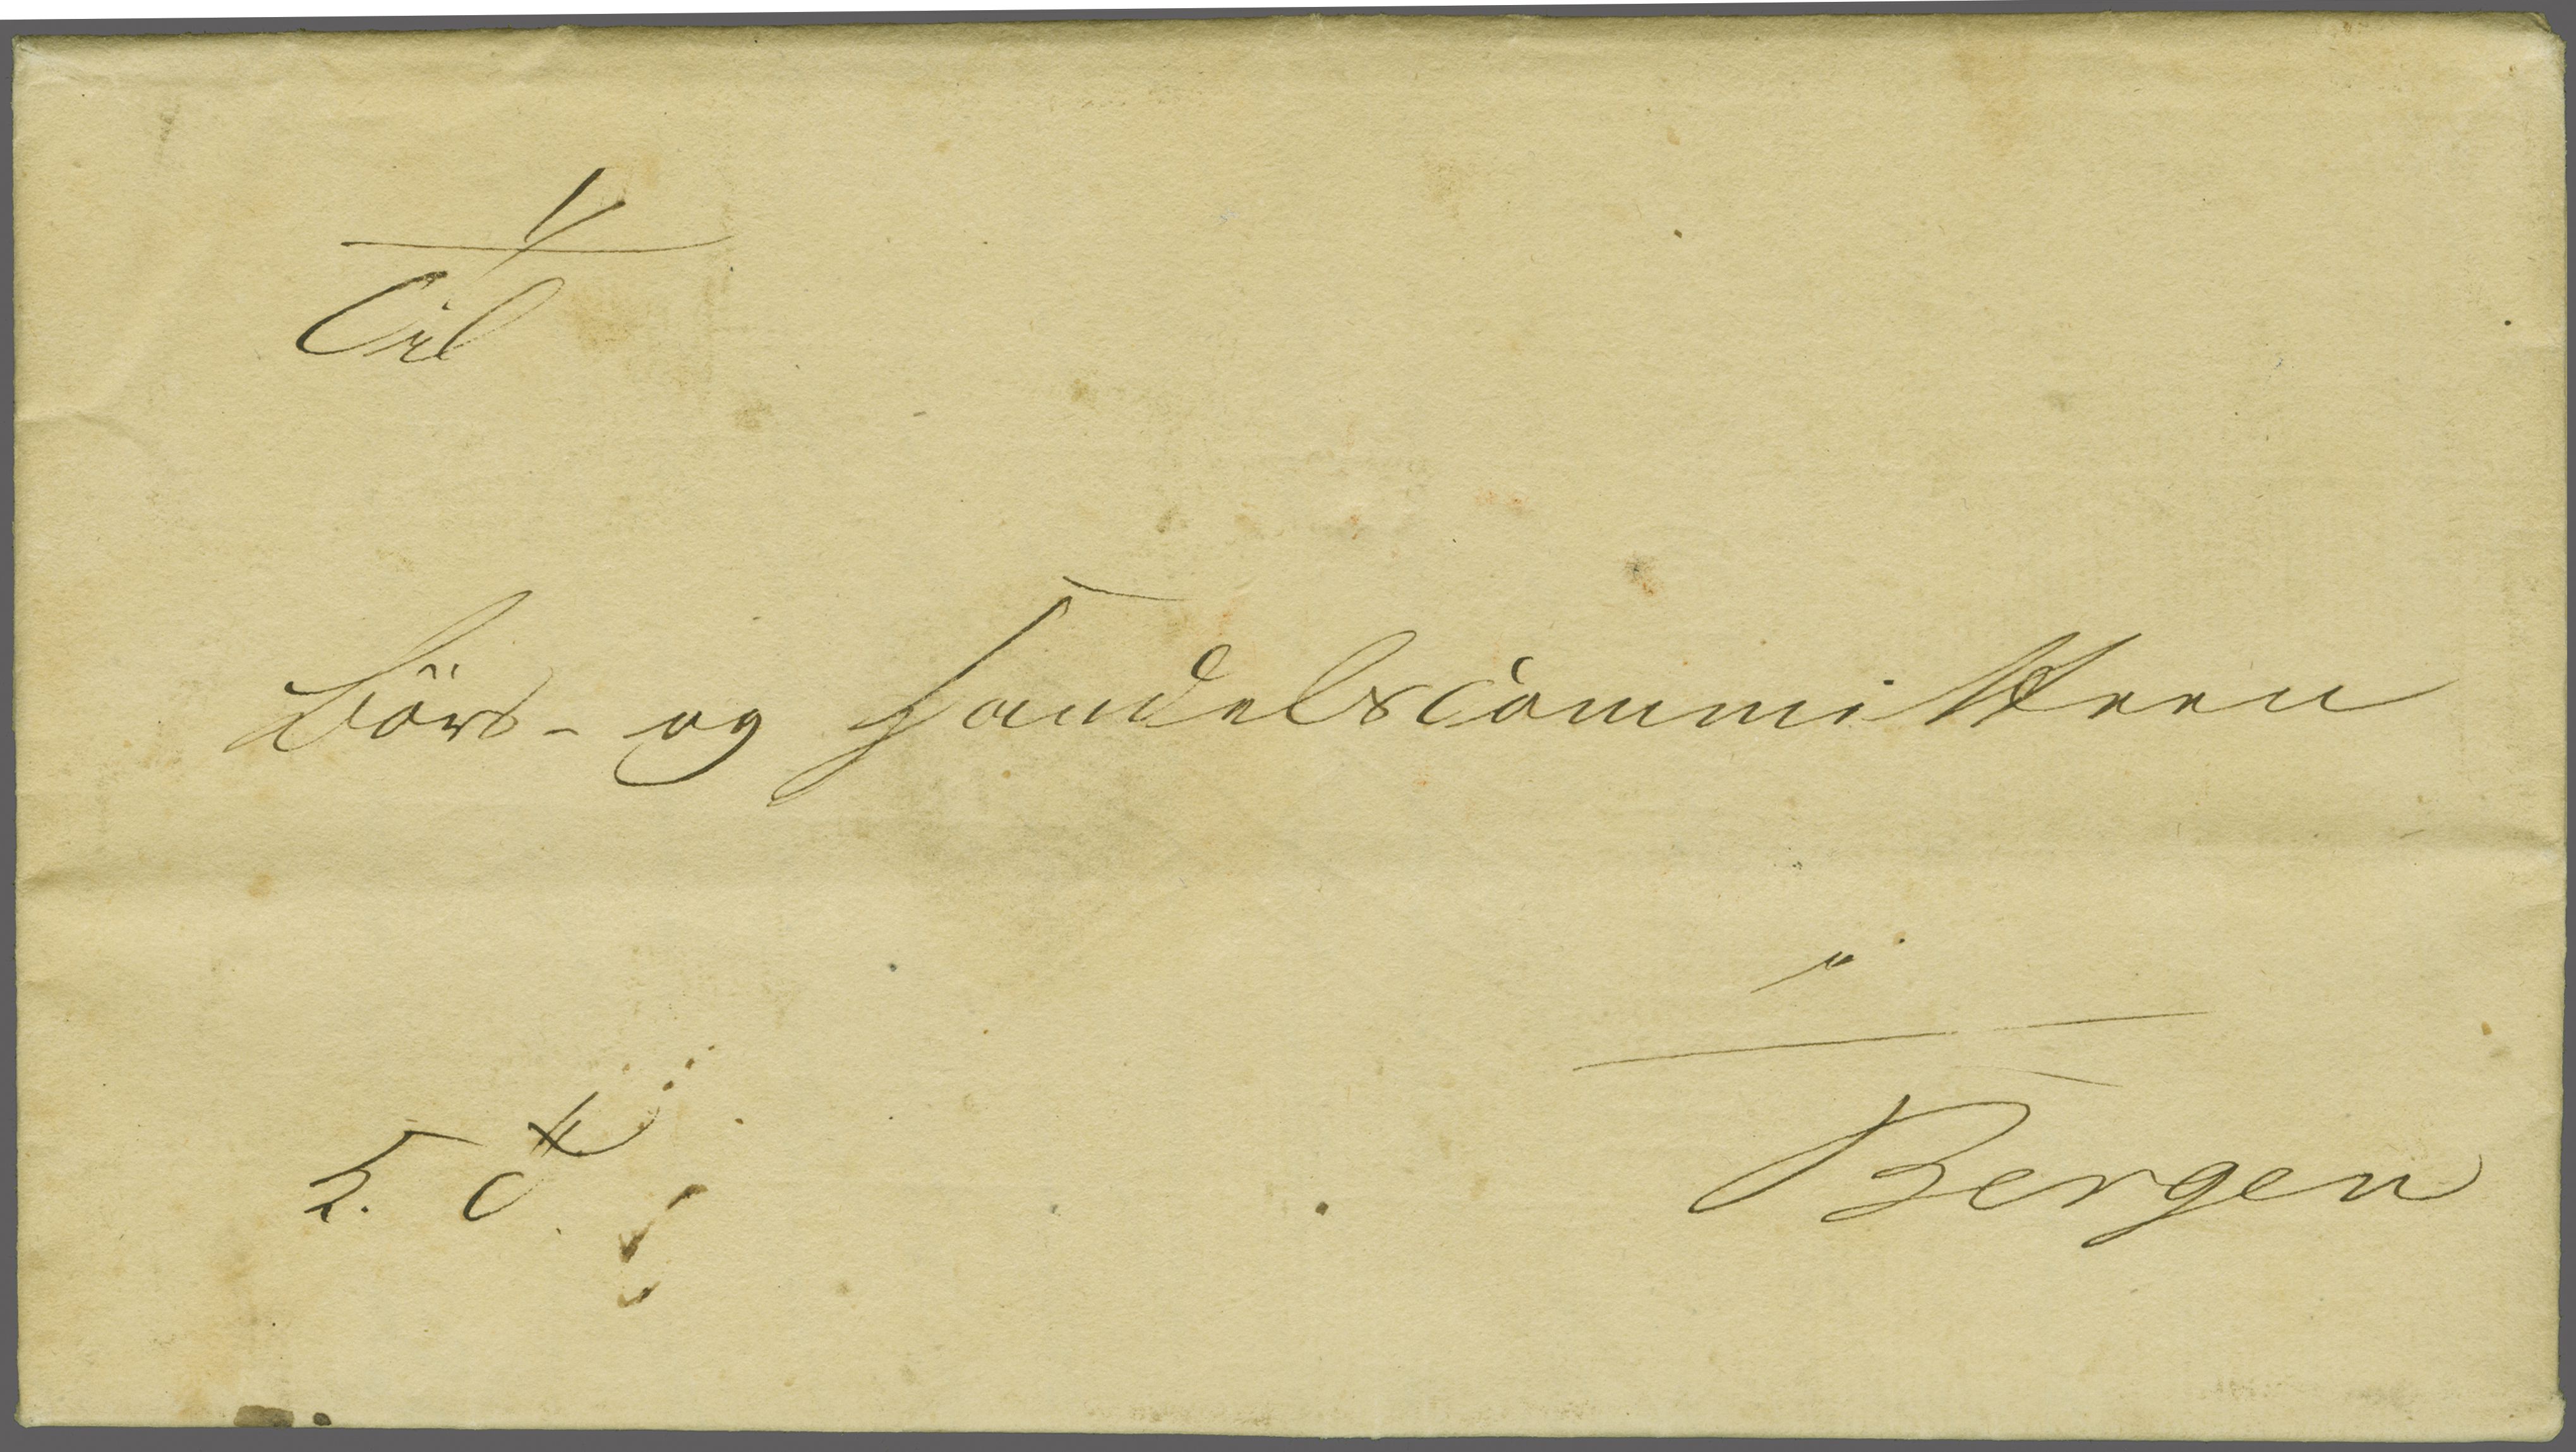 Til
Börs- og Handelscommitteen
i
Bergen